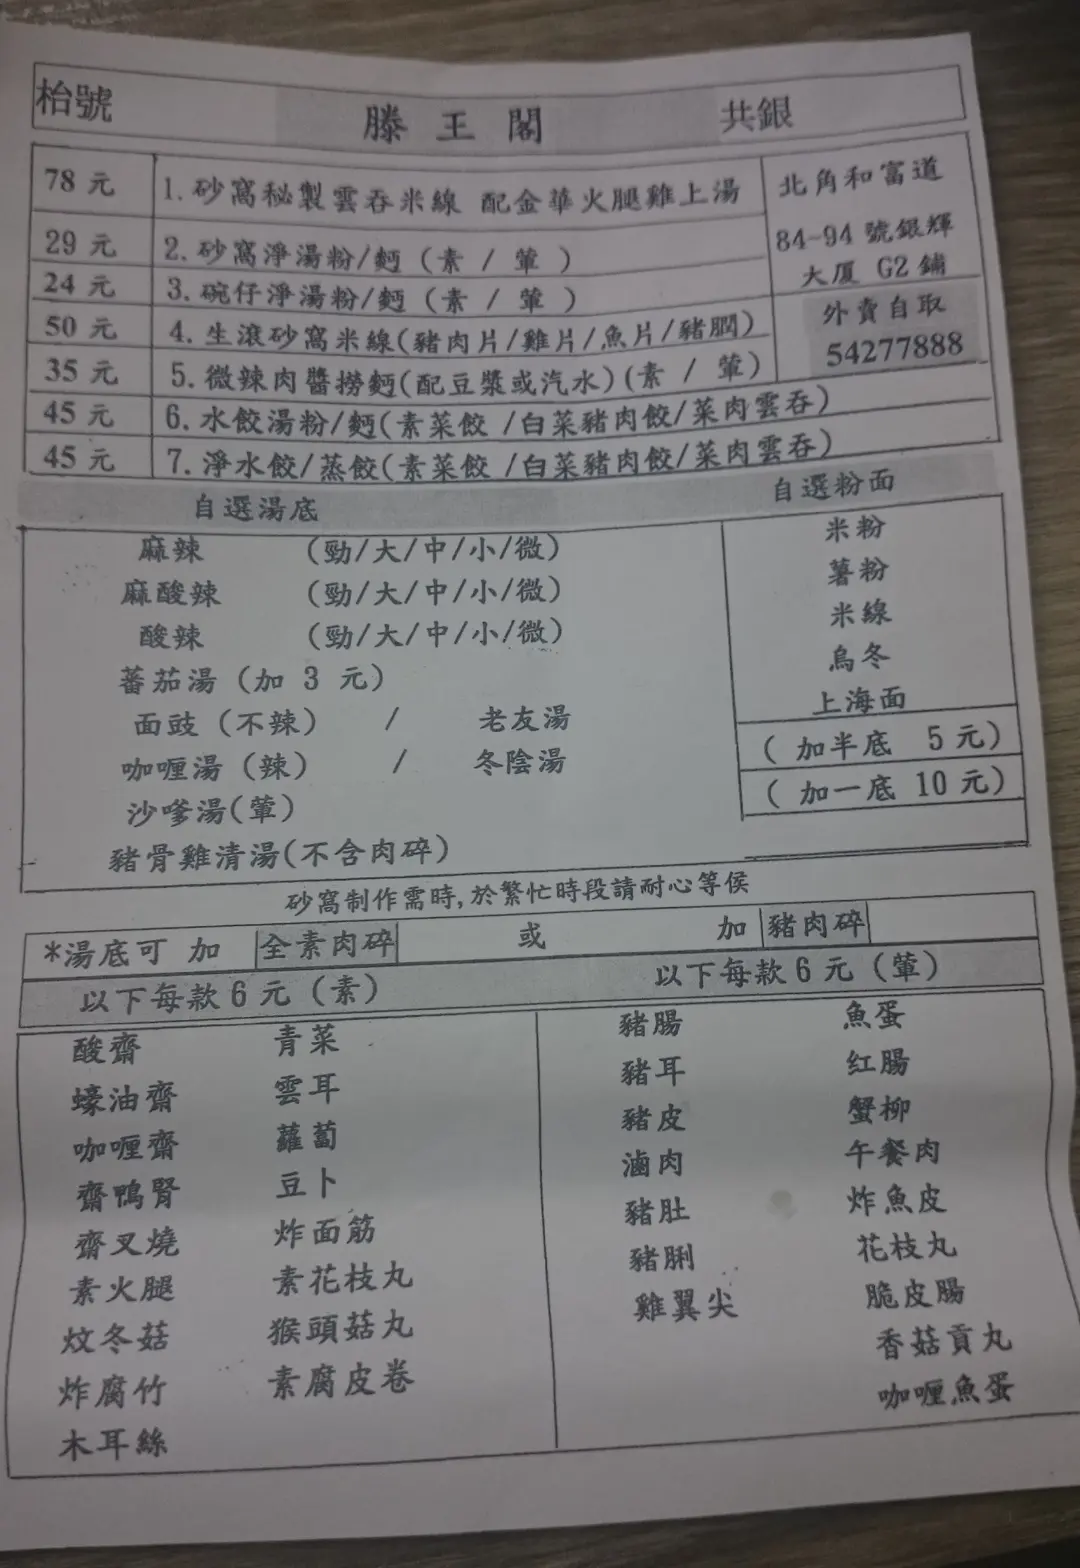 枱號 滕王閣 共銀
78 元 1. 砂窩秘製雲吞米線 配金華火腿雞上湯
29 元 2. 砂窩淨湯粉/麪 (素 / 葷 )
24 元 3. 碗仔淨湯粉/麪 (素 / 葷 )
50 元 4. 生滾砂窩米線(豬肉片/雞片/魚片/豬膶)
35 元 5. 微辣肉醬撈麪(配豆漿或汽水)(素 / 葷)
45 元 6. 水餃湯粉/麪(素菜餃 /白菜豬肉餃/菜肉雲吞)
45 元 7. 淨水餃/蒸餃(素菜餃 /白菜豬肉餃/菜肉雲吞)
北角和富道
84-94 號銀輝
大厦 G2 鋪
外賣自取
54277888
自選湯底
麻辣 (勁/大/中/小/微)
麻酸辣 (勁/大/中/小/微)
酸辣 (勁/大/中/小/微)
蕃茄湯 (加 3 元)
面豉 (不辣) / 老友湯
咖喱湯 (辣) / 冬陰湯
沙嗲湯(葷)
豬骨雞清湯(不含肉碎)
自選粉面
米粉
薯粉
米線
烏冬
上海面
( 加半底 5 元)
( 加一底 10 元)
砂窩制作需時,於繁忙時段請耐心等侯
*湯底可 加 全素肉碎 或 加 豬肉碎
以下每款 6 元 (素)
酸齋 青菜
蠔油齋 雲耳
咖喱齋 蘿蔔
齋鴨腎 豆卜
齋叉燒 炸面筋
素火腿 素花枝丸
炆冬菇 猴頭菇丸
炸腐竹 素腐皮卷
木耳絲
以下每款 6 元 (葷)
豬腸 魚蛋
豬耳 红腸
豬皮 蟹柳
滷肉 午餐肉
豬肚 炸魚皮
豬脷 花枝丸
雞翼尖 脆皮腸
香菇貢丸
咖喱魚蛋